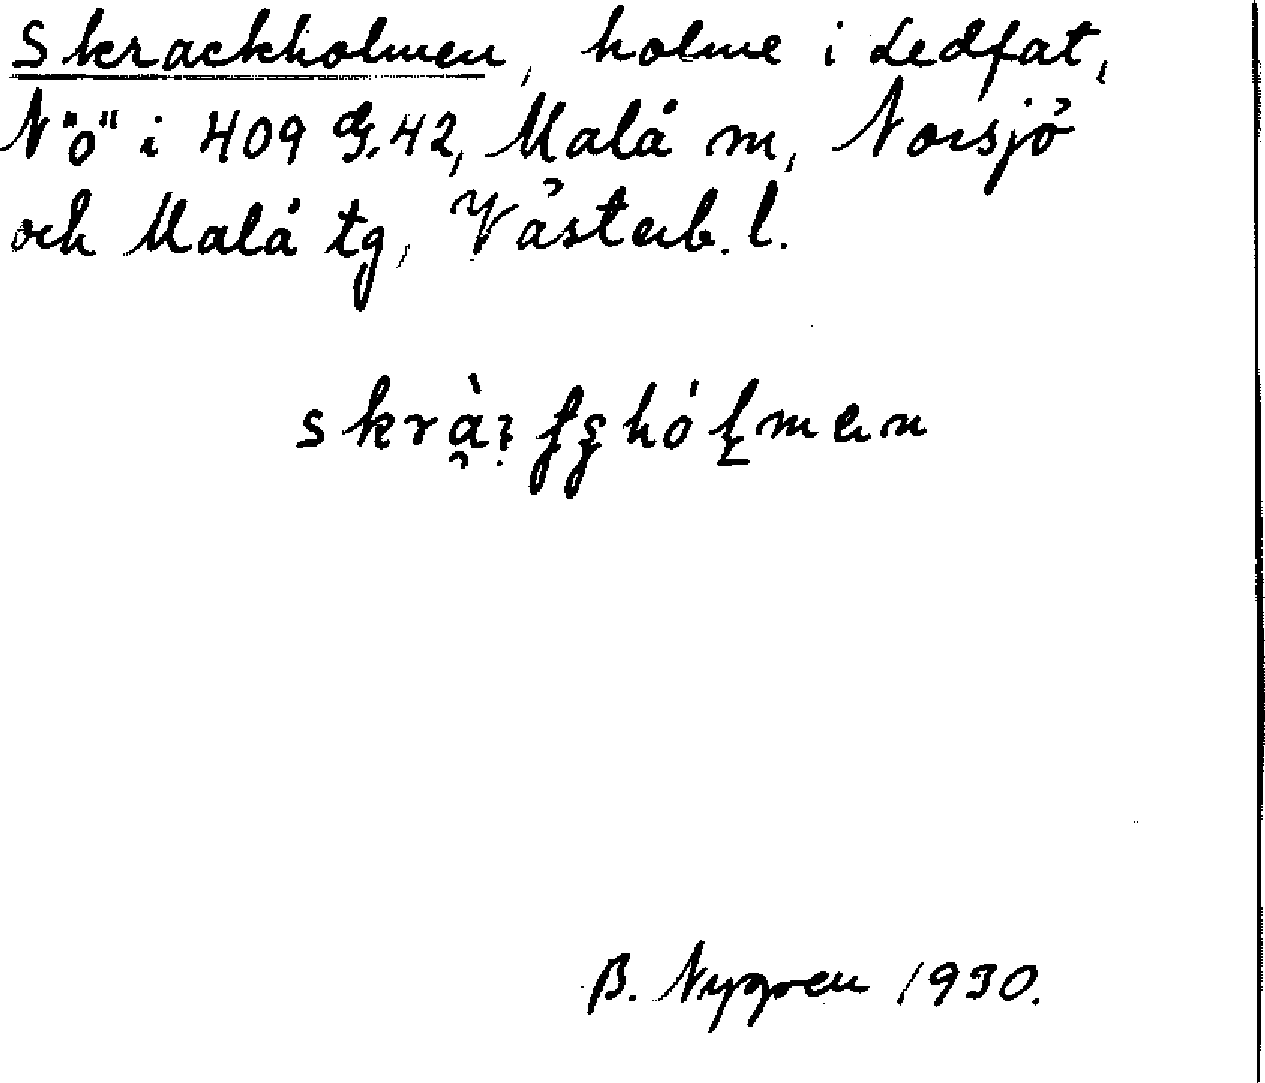 Skrackholmen, holme i Ledfat,
N"ö" i 409 G. 42, Malå m, Norsjö
och Malå tg, Västerb. l.
B. Nygren 1930.